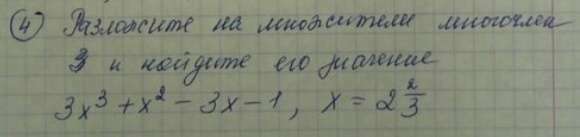 ④ Разложите на множители многочлен
3 и найдите его значение
3x³ + x² - 3x - 1, x = 2 2/3